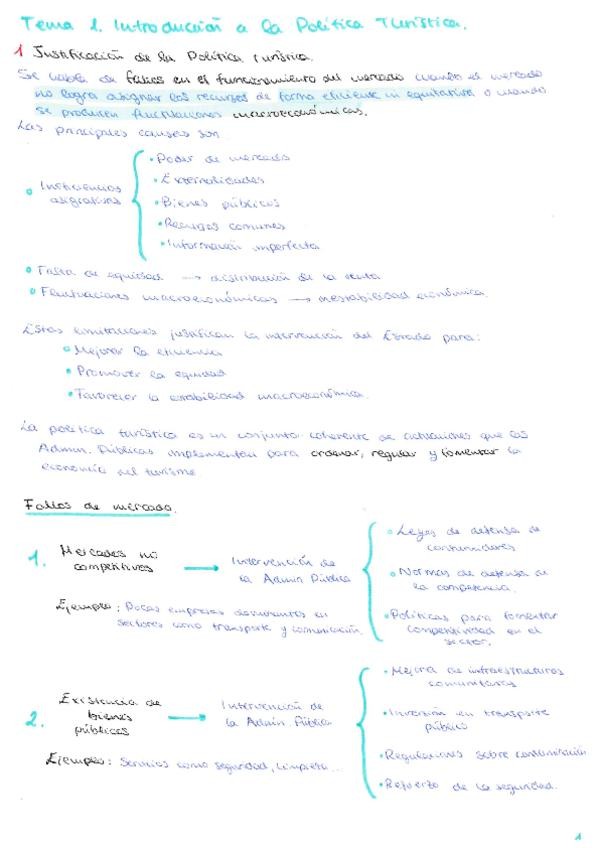 Tema 1. Introducción a la Política Turística.
1 Justificación de la Política Turística.
Se habla de fallos en el funcionamiento del mercado cuando el mercado
no logra asignar los recursos de forma eficiente ni equitativa o cuando
se producen fluctuaciones macroeconómicas.
Las principales causas son
• Poder de mercado
• Externalidades
• Ineficiencias asignativas
• Bienes públicos
• Recursos comunes
• Información imperfecta
• Falta de equidad → distribución de la renta
• Fluctuaciones macroeconómicas → inestabilidad económica.
Estas limitaciones justifican la intervención del Estado para:
• Mejorar la eficiencia
• Promover la equidad
• Favorecer la estabilidad macroeconómica.
La política turística es un conjunto coherente de actuaciones que las
Admin. Públicas implementan para ordenar, regular y fomentar la
economía del turismo
Fallos de mercado.
1. Mercados no
competitivos → Intervención de
la Admin Pública
• Leyes de defensa de
consumidores
• Normas de defensa de
la competencia.
• Políticas para fomentar
competitividad en el
sector.
Ejemplo: Pocas empresas dominantes en
sectores como transporte y comunicación.
2. Existencia de
bienes
públicos → Intervención de
la Admin. Pública
• Mejora de infraestructuras
comunitarias
• Inversión en transporte
público
• Regulaciones sobre contaminación
• Refuerzo de la seguridad.
Ejemplo: Servicios como seguridad, limpieza...
1